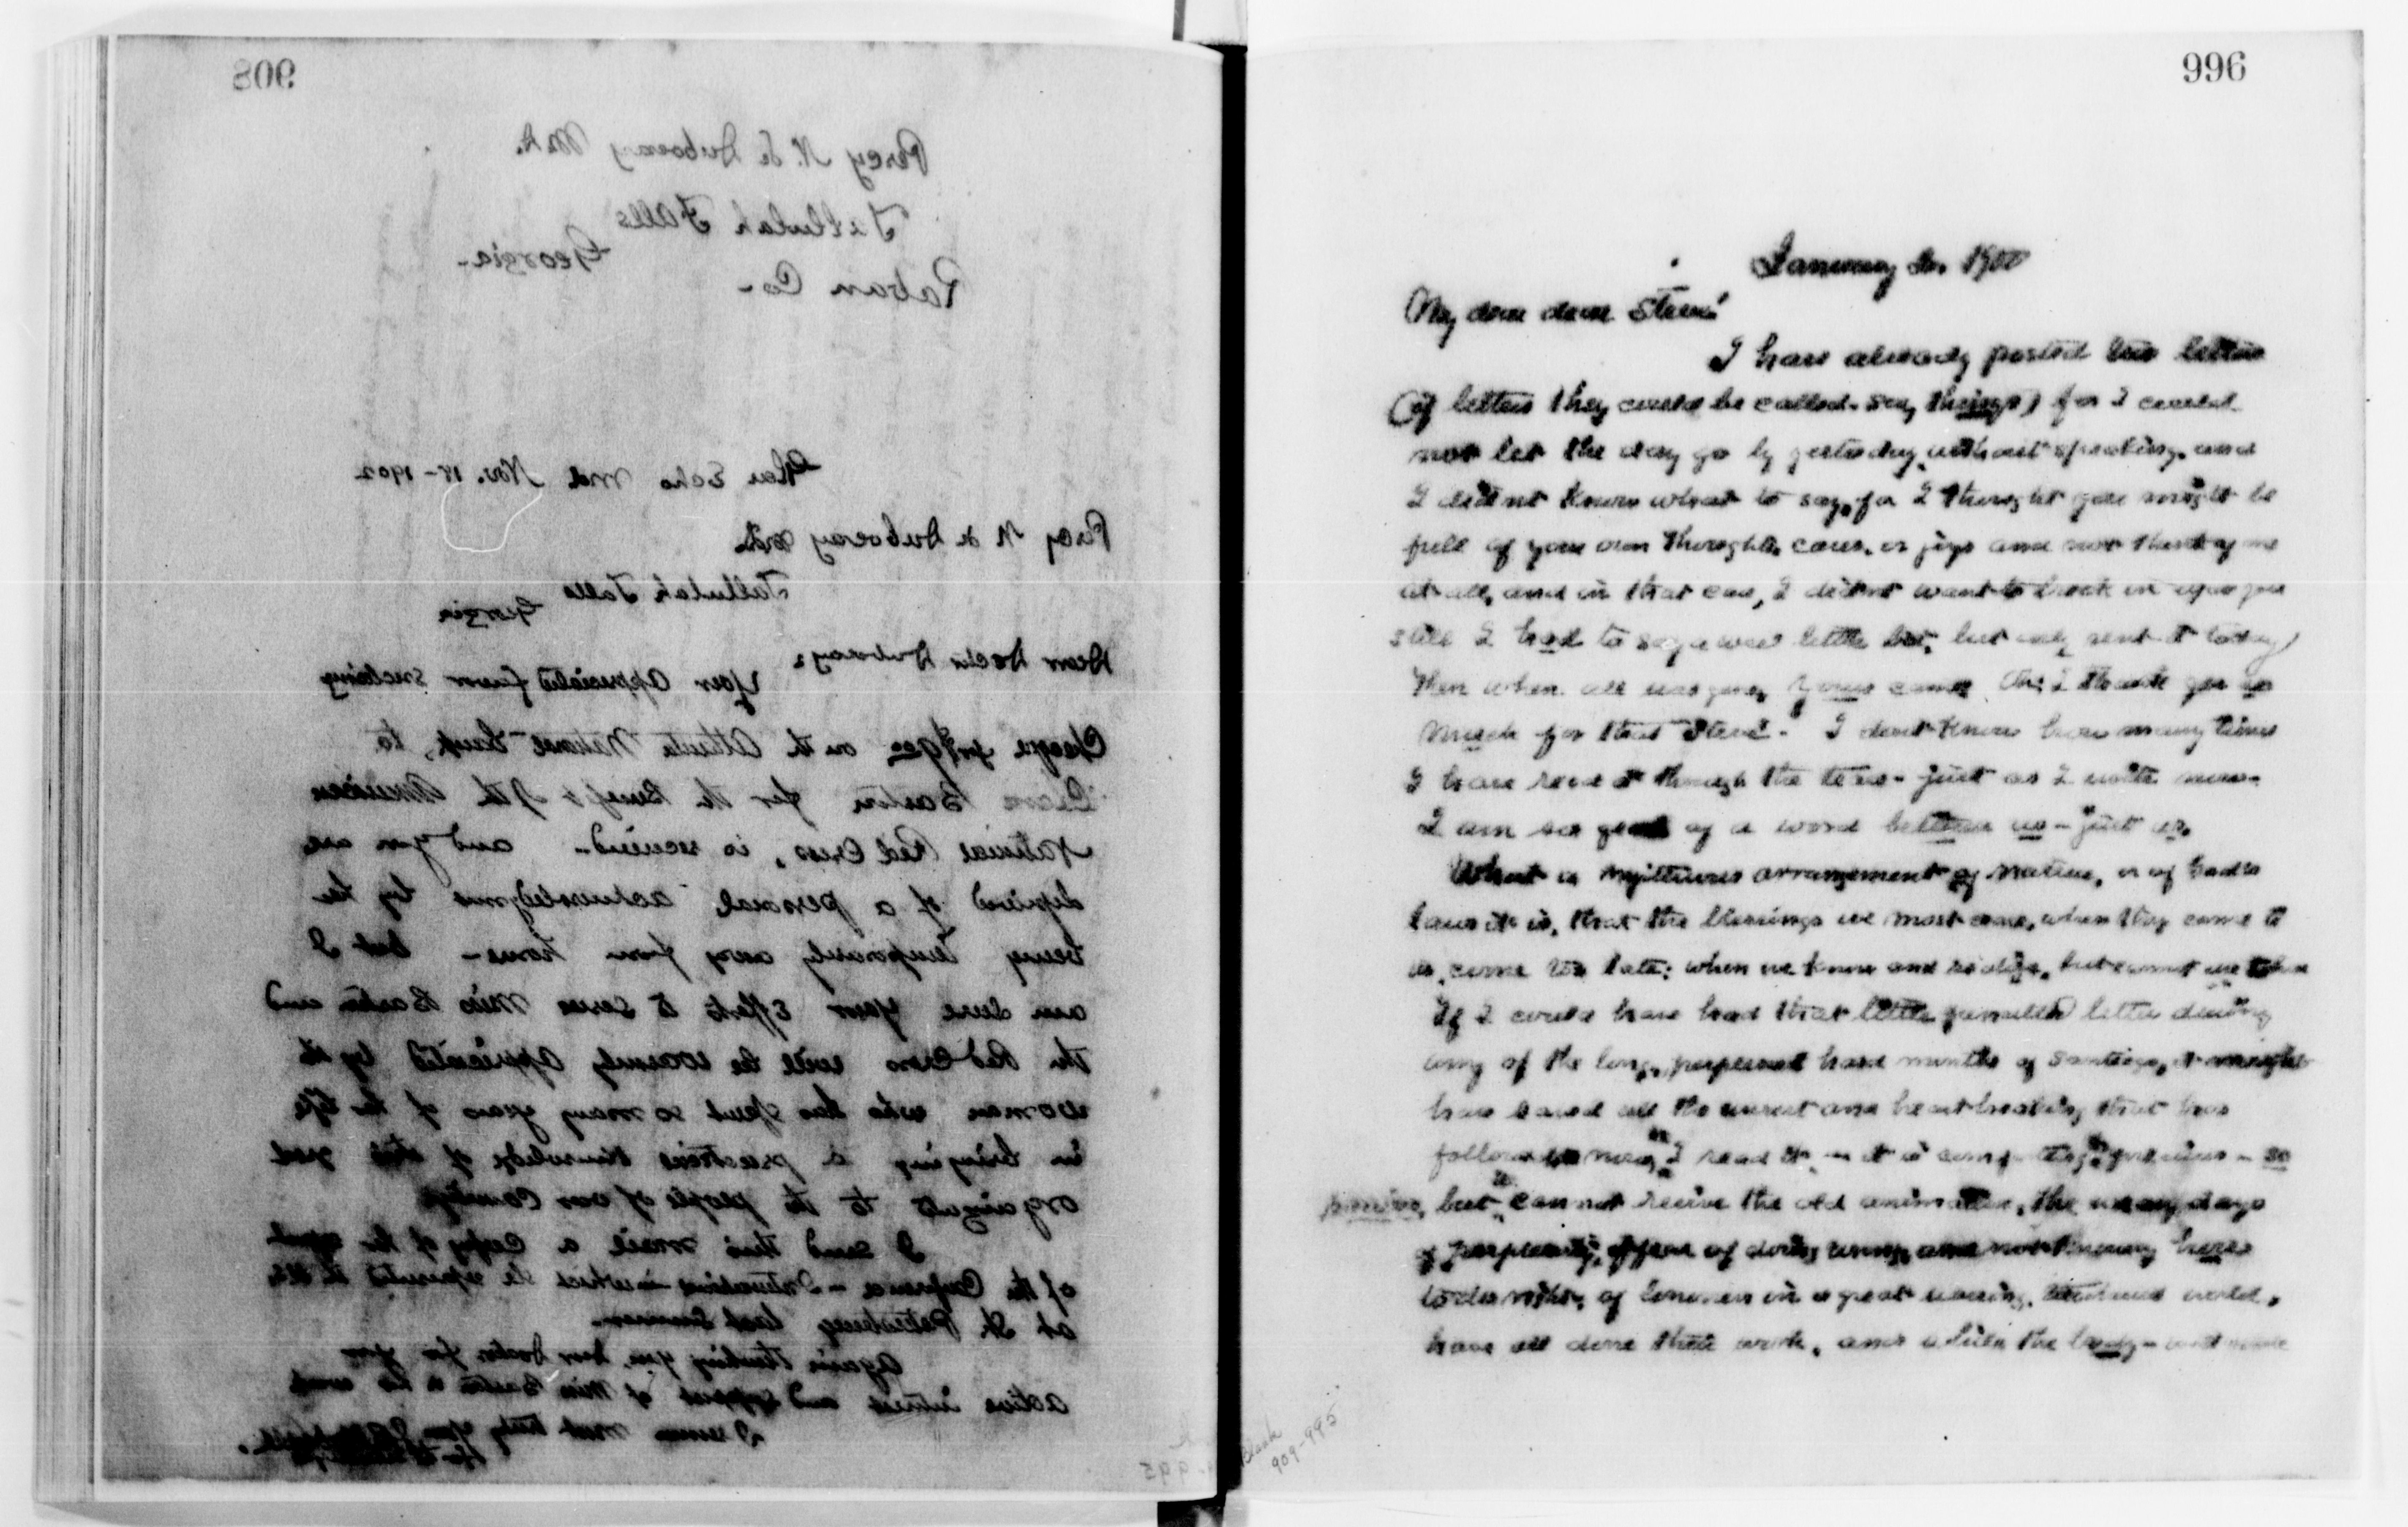 908
Percy N. de Dubovay M.D.
Tallulah Falls
Georgia-
Rabun Co-
Glen Echo Md. Nov. 18-1902
Percy N de Dubovay M.D.
Tallulah Falls
Georgia
Dear Doctor Dubovay,
Your appreciated favor enclosing
Cheque for on the Atlanta National Bank, to
Clara Barton for the Benefit of the American
National Red Cross, is received- and you are
deprived of a personal acknowledgment by her
being temporarily away from home- but I
am sure your efforts to serve Miss Barton and
the Red Cross will be warmly appreciated by the
woman who has spent so many years of her life
in bringing a practical knowledge of this great
organization to the people of our Country
I send this mail a copy of the report
of the Conference - in which she represented the U.S.
at St. Petersburg last Summer.
Again thanking you, dear Doctor for your
active interest and support of Miss Barton in her work
I remain most truly yours
996
January 1900
My dear dear Steve!
I have already posted two letters
(if letters they could be called- say things) for I could
not let the day go by yesterday without speaking, and
I didnt know what to say, for I thought you might be
full of your own thoughts, cares, or joys and not think of me
at all, and in that case, I didnt want to break in upon you
still I had to say a wee little bit, but only sent it today
Then when all was gone, yours came. Oh! I thank you so
much for that Steve. I dont know how many times
I have read it through the tears- just as I write now-
I am so glad of a word between us- just us.
What a mysterious arrangement of nature, or of God's
laws it is, that the blessings we most crave, when they come to
us, come too late; when we know and realize, but cannot use them
If I could have had that little pencilled letter during
any of the long, perplexed hard months of Santiago, it might
have saved all the unrest and heartbreaking that has
followed. now, I read it as it is comforting, precious - so
precious, but cannot revive the old animation, the weary days
of perplexity, of fear of doing wrong, and not knowing how
to do right, of in a great world,
have all done their work, and while the body-
Blank
909-995